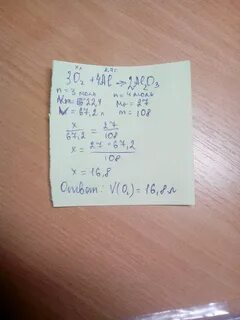 x л 2,7г
3O₂ + 4Al → 2Al₂O₃
n = 3 моль n = 4 моль
Vm = 22,4 Mr = 27
V = 67,2 л m = 108
x/67,2 = 27/108
x = 27·67,2/108
x = 16,8
Ответ: V(O₂) = 16,8 л